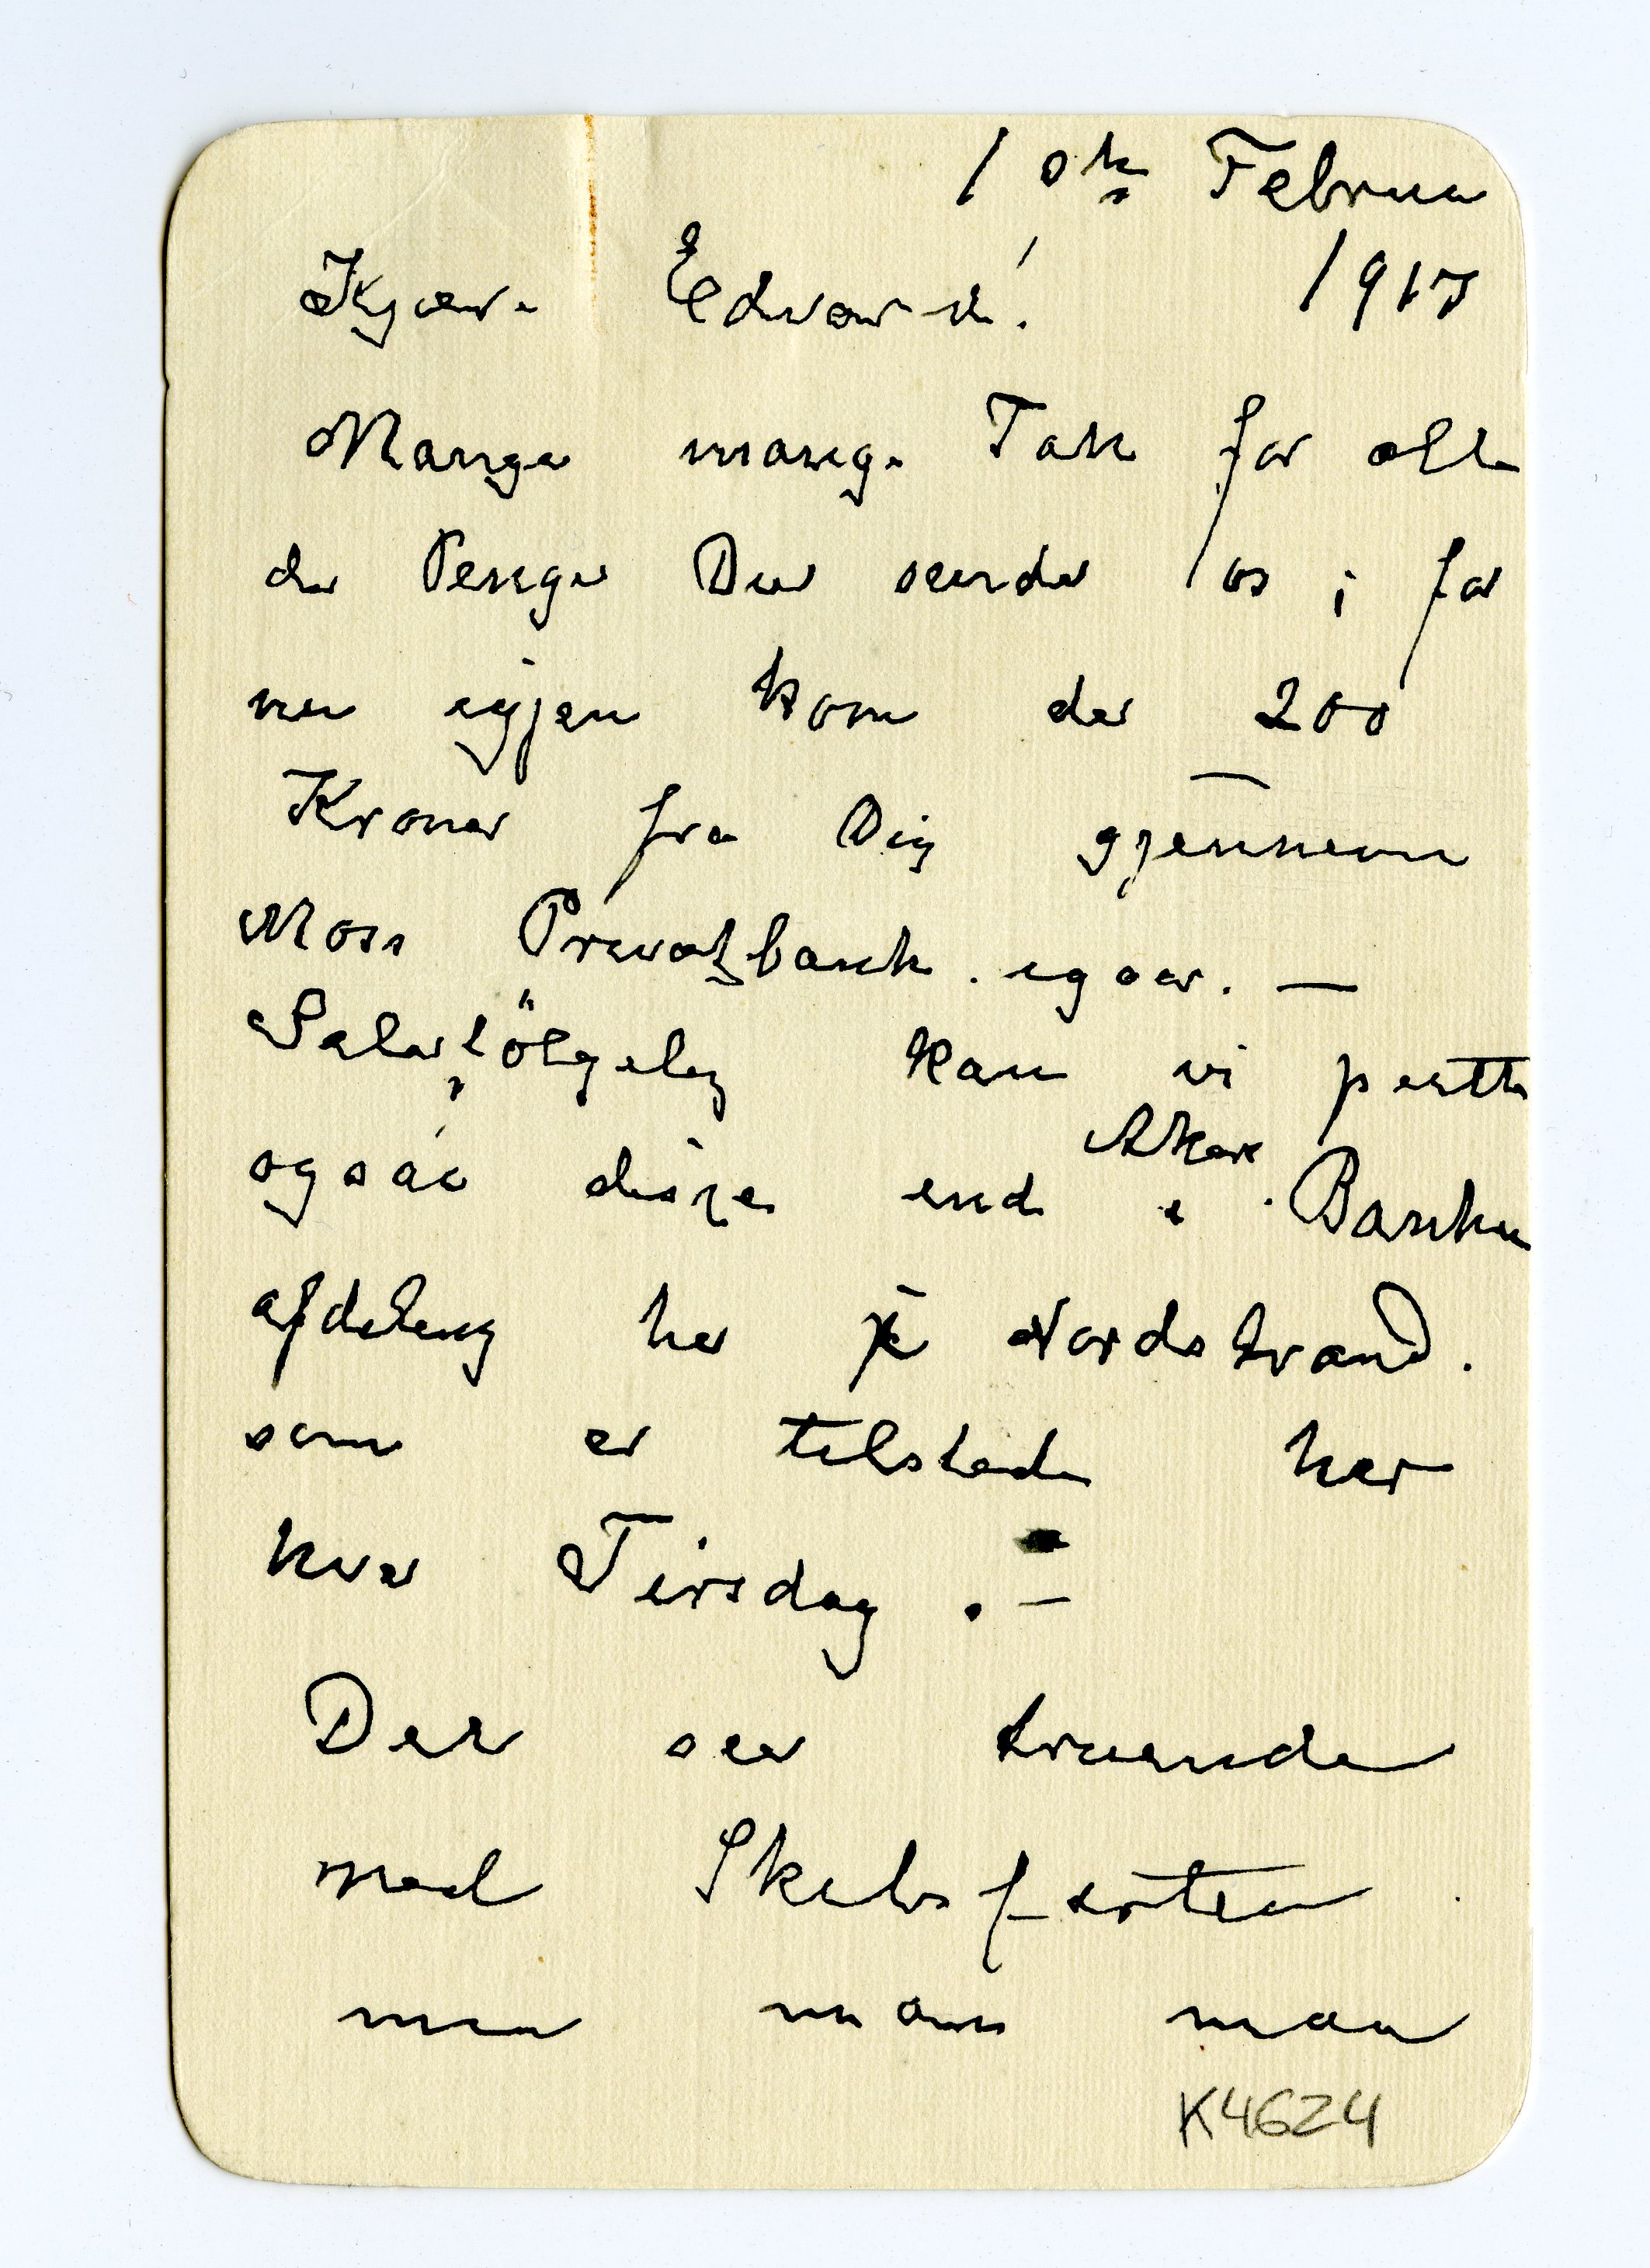 10de Februa
1917
Kjære Edvard!
Mange mange Tak for alle
de Penge Du sender os i for
nu igjen kom der 200
Kroner fra Dig gjennem
Moss Privatbank. igaar. —
Selvfölgelig kan vi putte
også disse ind i Aker Banken
afdeling her på Nordstrand.
som er tilstede her
hver Tirsdag. —
Det ser truende
med Skibsfarten
men man maa
K4624